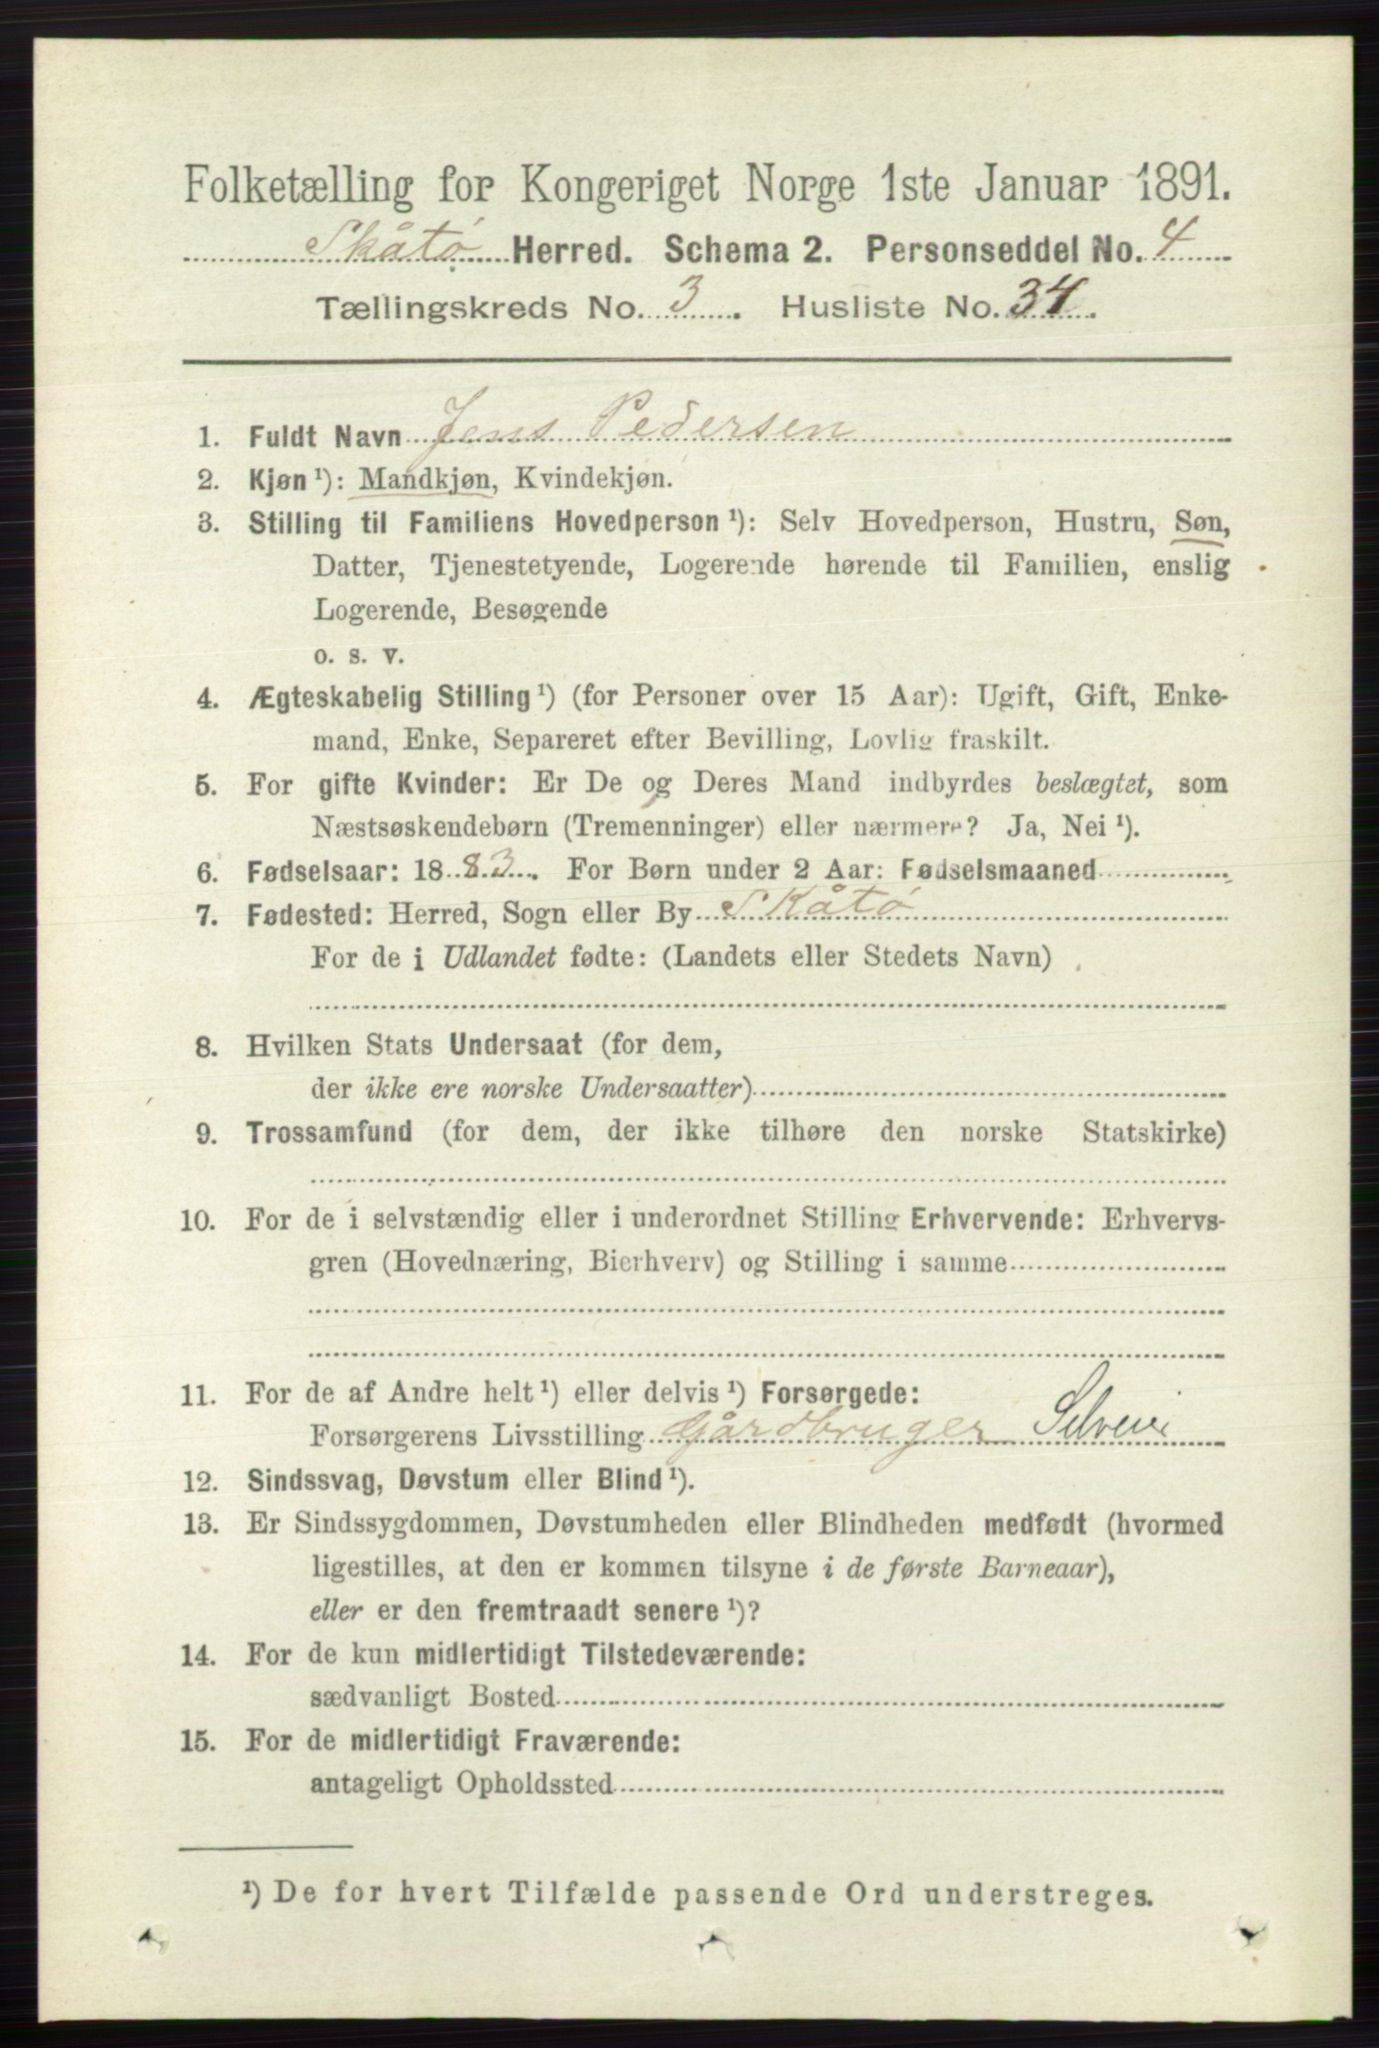 Folketælling for Kongeriget Norge 1ste Januar 1891.
Skåtø Herred. Schema 2. Personseddel No. 4
Tællingskreds No. 3. Husliste No. 34.
1. Fuldt Navn Jens Pedersen
2. Kjøn ¹): Mandkjøn, Kvindekjøn.
3. Stilling til Familiens Hovedperson ¹): Selv Hovedperson, Hustru, Søn,
Datter, Tjenestetyende, Logerende hørende til Familien, enslig
Logerende, Besøgende
o. s. v.
4. Ægteskabelig Stilling ¹) (for Personer over 15 Aar): Ugift, Gift, Enke-
mand, Enke, Separeret efter Bevilling, Lovlig fraskilt.
5. For gifte Kvinder: Er De og Deres Mand indbyrdes beslægtet, som
Næstsøskendebørn (Tremenninger) eller nærmere? Ja, Nei ¹).
6. Fødselsaar: 1883. For Børn under 2 Aar: Fødselsmaaned
7. Fødested: Herred, Sogn eller By Skåtø
For de i Udlandet fødte: (Landets eller Stedets Navn)
8. Hvilken Stats Undersaat (for dem,
der ikke ere norske Undersaatter)
9. Trossamfund (for dem, der ikke tilhøre den norske Statskirke)
10. For de i selvstændig eller i underordnet Stilling Erhvervende: Erhvervs-
gren (Hovednæring, Bierhverv) og Stilling i samme
11. For de af Andre helt ¹) eller delvis ¹) Forsørgede:
Forsørgerens Livsstilling Gårdbruger Selveier
12. Sindssvag, Døvstum eller Blind ¹).
13. Er Sindssygdommen, Døvstumheden eller Blindheden medfødt (hvormed
ligestilles, at den er kommen tilsyne i de første Barneaar),
eller er den fremtraadt senere ¹)?
14. For de kun midlertidigt Tilstedeværende:
sædvanligt Bosted
15. For de midlertidigt Fraværende:
antageligt Opholdssted
¹) De for hvert Tilfælde passende Ord understreges.